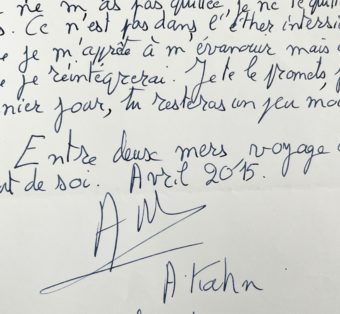 ne m'as pas quittée, je ne te quit
s. Ce n'est pas dans l'éther intersi
e je m'apprête à m'évanouir mais
e je réintégrerai. Je te le promets,
nier jour, tu resteras un peu mo
Entre deux mers voyage
nt de soi. Avril 2015.
A. Kahn